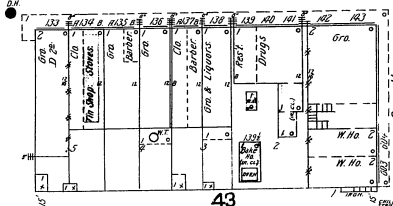 D.H.
133 A134 B. A135 B. 136 A137 B. 138 139 140 141 142 143
Gro.
D 2nd
Clo.
Tin Shop. Stoves.
Gro.
Barber
Gro.
Clo.
Barber.
Gro. & Liquors
Rest.
Drugs
Gro.
W.T.
139½
Bake Ho.
OVEN
W. Ho.
W. Ho.
5 4 3 2 1
IRON.
15'
43
15'